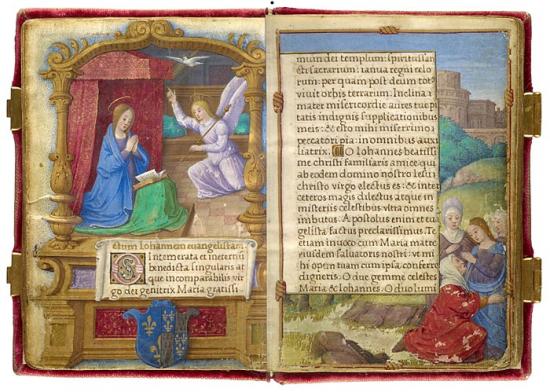 ctum Iohannem euangelistam.
Intemerata et ineternum
benedicta singularis at
que incomparabilis vir
go dei genitrix Maria gratissi
mum dei templum: spiritus san
cti sacrarium: ianua regni celo
rum: per quam post deum totus
viuit orbis terrarum. Inclina
mater misericordie aures tue pie
tatis indignis supplicationibus
meis: & esto mihi miserrimo
peccatori pia: in omnibus auxi
liatrix. O Iohannes beatissi
me christi familiaris amice qui
ab eodem domino nostro Iesu
christo virgo electus es: & inter
ceteros magis dilectus atque in
misteriis celestibus ultra omnes
imbutus. Apostolus enim et eua
gelista factus preclarissimus. Te
etiam inuoco cum Maria matre
eiusdem saluatoris nostri: vt mi
hi opem tuam cum ipsa conferre
digneris. O due gemme celestes
Maria & Iohannes. O duo lumi